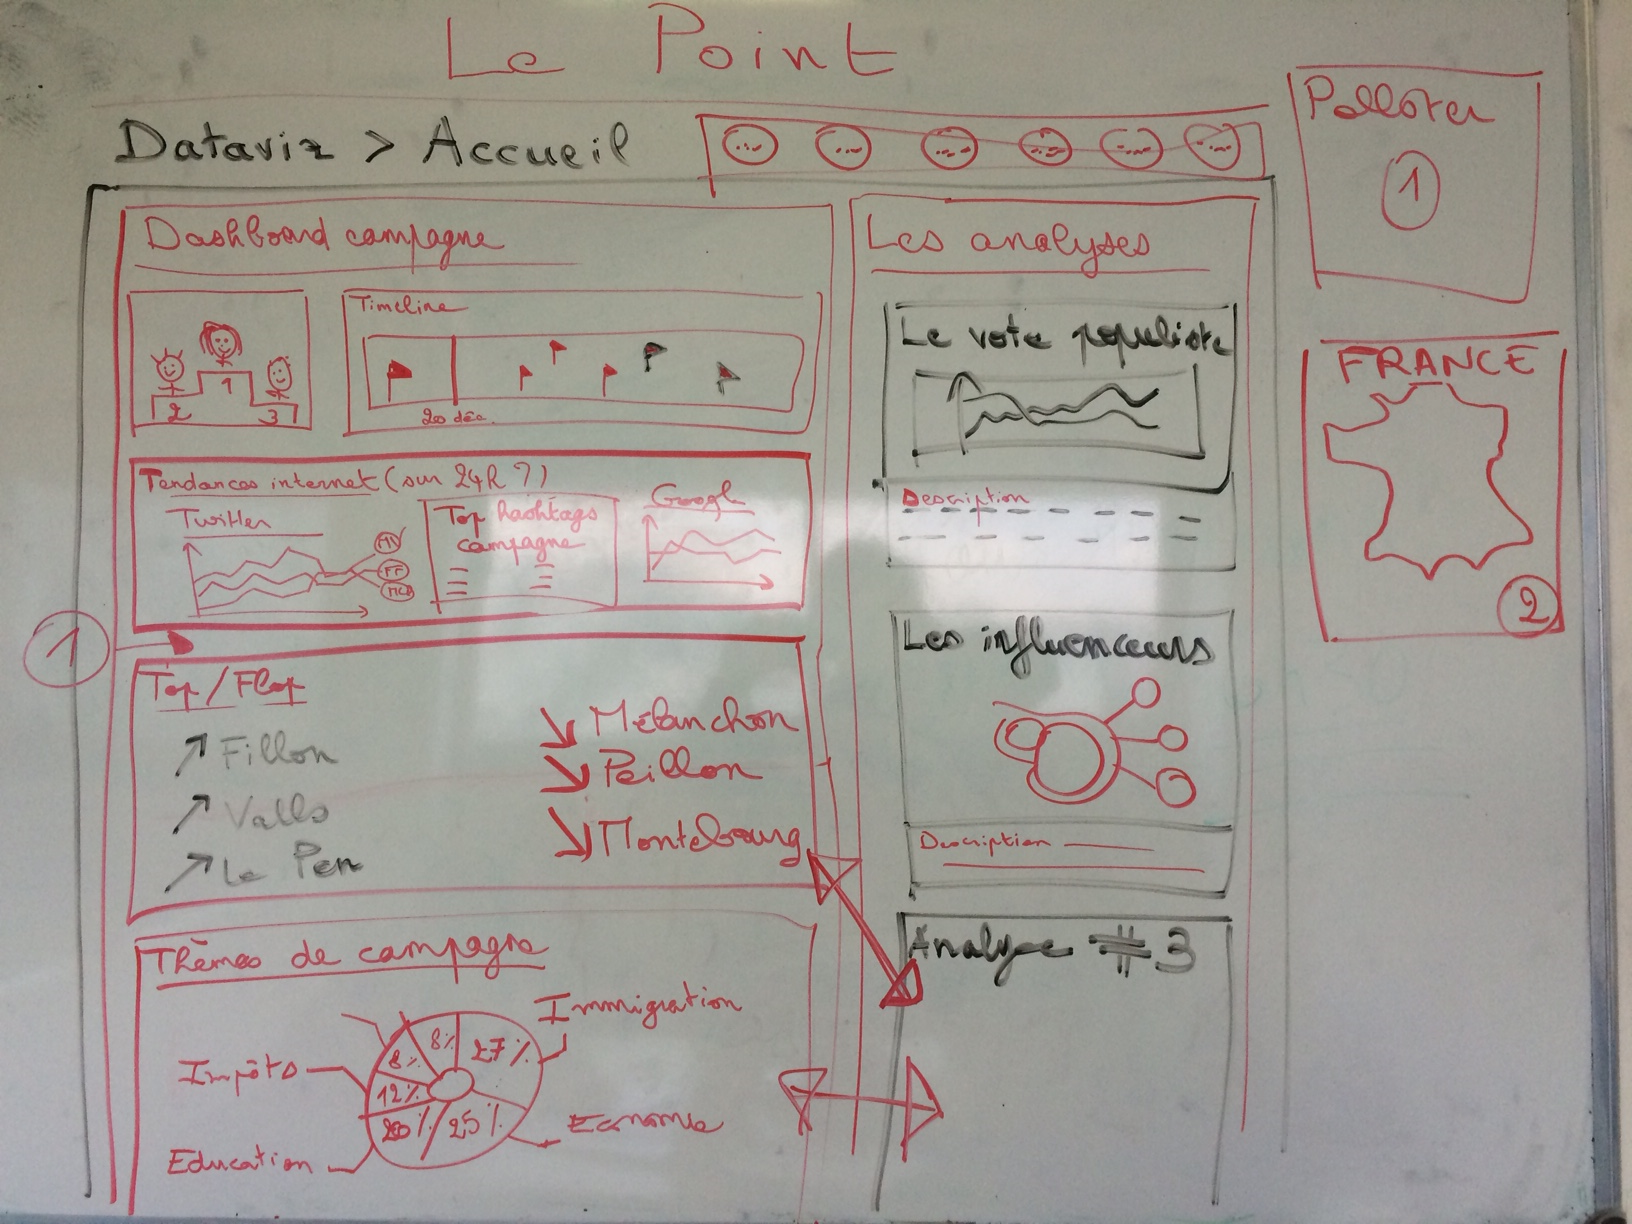 Le Point
Dataviz > Accueil
Dashboard campagne
1
2
3
Timeline
20 déc.
Tendances internet (sur 24h ?)
Twitter
FF
Top hashtags
campagne
Google
1
Top/Flop
Fillon
Valls
Le Pen
Mélanchon
Peillon
Montebourg
Thèmes de campagne
Immigration
8%
8%
27%
Impôts
12%
20%
25%
Economie
Education
Les analyses
Le vote populiste
Description
Les influenceurs
Description
Analyse #3
Pollster
1
FRANCE
2